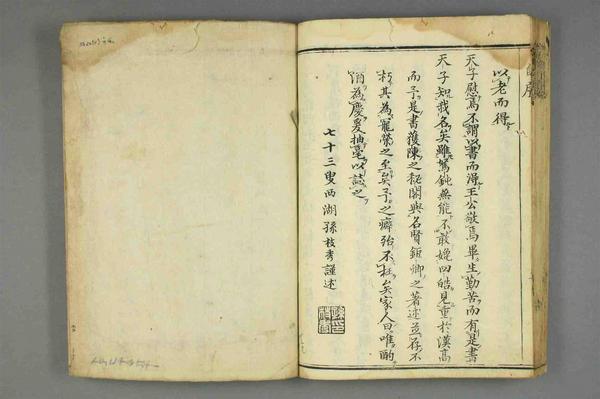 以老而得
天子慰焉不謂以書而得王公敬焉畢生勤苦而有是書
天子知我名矣雖駑鈍無能不敢媿四皓見重於漢高
而予是書獲陳之秘閣與名賢鉅卿之著述並存不
朽其為寵榮之至矣予之癖殆不枉矣家人曰唯酌
酒為慶爰抽毫以誌之
七十三叟西湖孫枝孝謹述